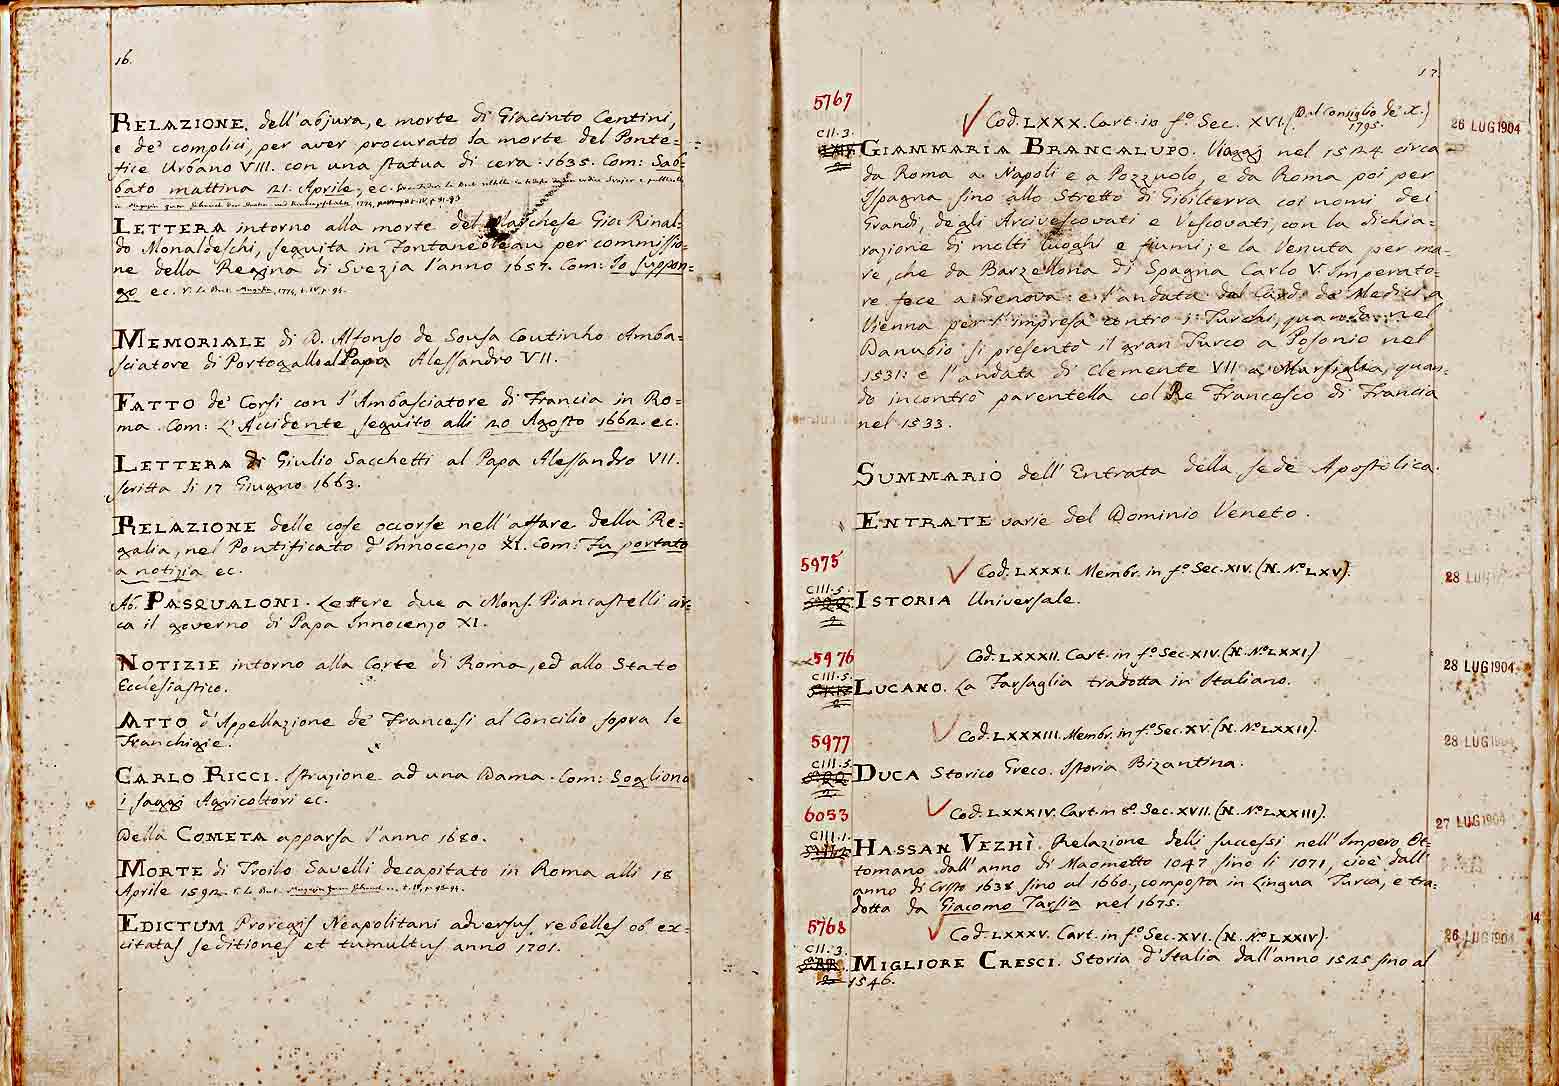 16.
RELAZIONE. dell'abjura, e morte di Giacinto Centini,
e de' complici, per aver procurato la morte del Ponte=
fice Urbano VIII. con una statua di cera: 1635. Com: Sab=
bato mattina 21. Aprile, ec.
LETTERA intorno alla morte del Marchese Gio: Rinal=
do Monaldeschi, seguita in Fontanebleau per commissio=
ne della Regina di Svezia l'anno 1657. Com: Io suppon=
go ec. V. Le Bret. Magazin, 1774, t. IV. p. 94.
MEMORIALE di D. Alfonso de Sousa Coutinho Amba=
sciatore di Portogallo al Papa Alessandro VII.
FATTO de' Corsi con l'Ambasciatore di Francia in Ro=
ma. Com: L'Accidente seguito alli 20 Agosto 1662. ec.
LETTERA di Giulio Sacchetti al Papa Alessandro VII.
scritta li 17 Giugno 1663.
RELAZIONE delle cose occorse nell'affare della Re=
galia, nel Pontificato d'Innocenzo XI. Com: Fu portato
a notizia ec.
Ab. PASQUALONI. Lettere due a Mons. Piancastelli cir=
ca il governo di Papa Innocenzo XI.
NOTIZIE intorno alla Corte di Roma, ed allo Stato
Ecclesiastico.
ATTO d'Appellazione de' Francesi al Concilio sopra le
Franchigie.
CARLO RICCI. Istruzione ad una Dama. Com: Sogliono
i saggi Agricoltori ec.
Della COMETA apparsa l'anno 1680.
MORTE di Troilo Savelli decapitato in Roma alli 18
Aprile 1592. V. Le Bret. Magazin
EDICTUM Proregis Neapolitani adversus rebelles ob ex=
citatas seditiones et tumultus anno 1701.
17.
5767
Cod. LXXX. Cart. in fº. Sec. XVI. (Dal Consiglio de' X.)
1795.
26 LUG 1904
CII. 3.
GIAMMARIA BRANCALUPO. Viaggj nel 1524 circa
da Roma a Napoli e a Pozzuolo, e da Roma poi per
Ispagna sino allo Stretto di Gibilterra coi nomi dei
Grandi, degli Arcivescovati e Vescovati, con la dichia=
razione di molti luoghi e fiumi; e la Venuta per ma=
re, che da Barzellona di Spagna Carlo V. Imperato=
re fece a Genova: e l'andata del Card. de' Medici a
Vienna per l'impresa contro i Turchi, quando nel
Danubio si presentò il gran Turco a Posonio nel
1531: e l'andata di Clemente VII a Marsiglia, quan=
do incontrò parentella col Re Francesco di Francia
nel 1533.
SUMMARIO dell'Entrata della Sede Apostolica.
ENTRATE varie del Dominio Veneto.
5975
Cod. LXXXI. Membr. in fº. Sec. XIV. (N. Nº. LXV).
28 LUG
CIII. 5.
ISTORIA Universale.
5976
Cod. LXXXII. Cart. in fº. Sec. XIV. (N. Nº. LXXI)
28 LUG 1904
CIII. 5.
LUCANO. La Farsaglia tradotta in Italiano.
5977
Cod. LXXXIII. Membr. in fº. Sec. XV. (N. Nº. LXXII).
28 LUG 1904
CIII. 5.
DUCA Storico Greco. Istoria Bizantina.
6053
Cod. LXXXIV. Cart. in 8º. Sec. XVII. (N. Nº. LXXIII).
27 LUG 1904
CIII. 1.
HASSAN VEZHÌ. Relazione delli successi nell'Impero Ot=
tomano dall'anno di Maometto 1047 sino li 1071, cioè dall'
anno di Cristo 1638 sino al 1660., composta in Lingua Turca, e tra=
dotta da Giacomo Tarsia nel 1675.
5768
Cod. LXXXV. Cart. in fº. Sec. XVI. (N. Nº. LXXIV).
26 LUG 1904
CII. 3
MIGLIORE CRESCI. Storia d'Italia dall'anno 1525 sino al
1546.